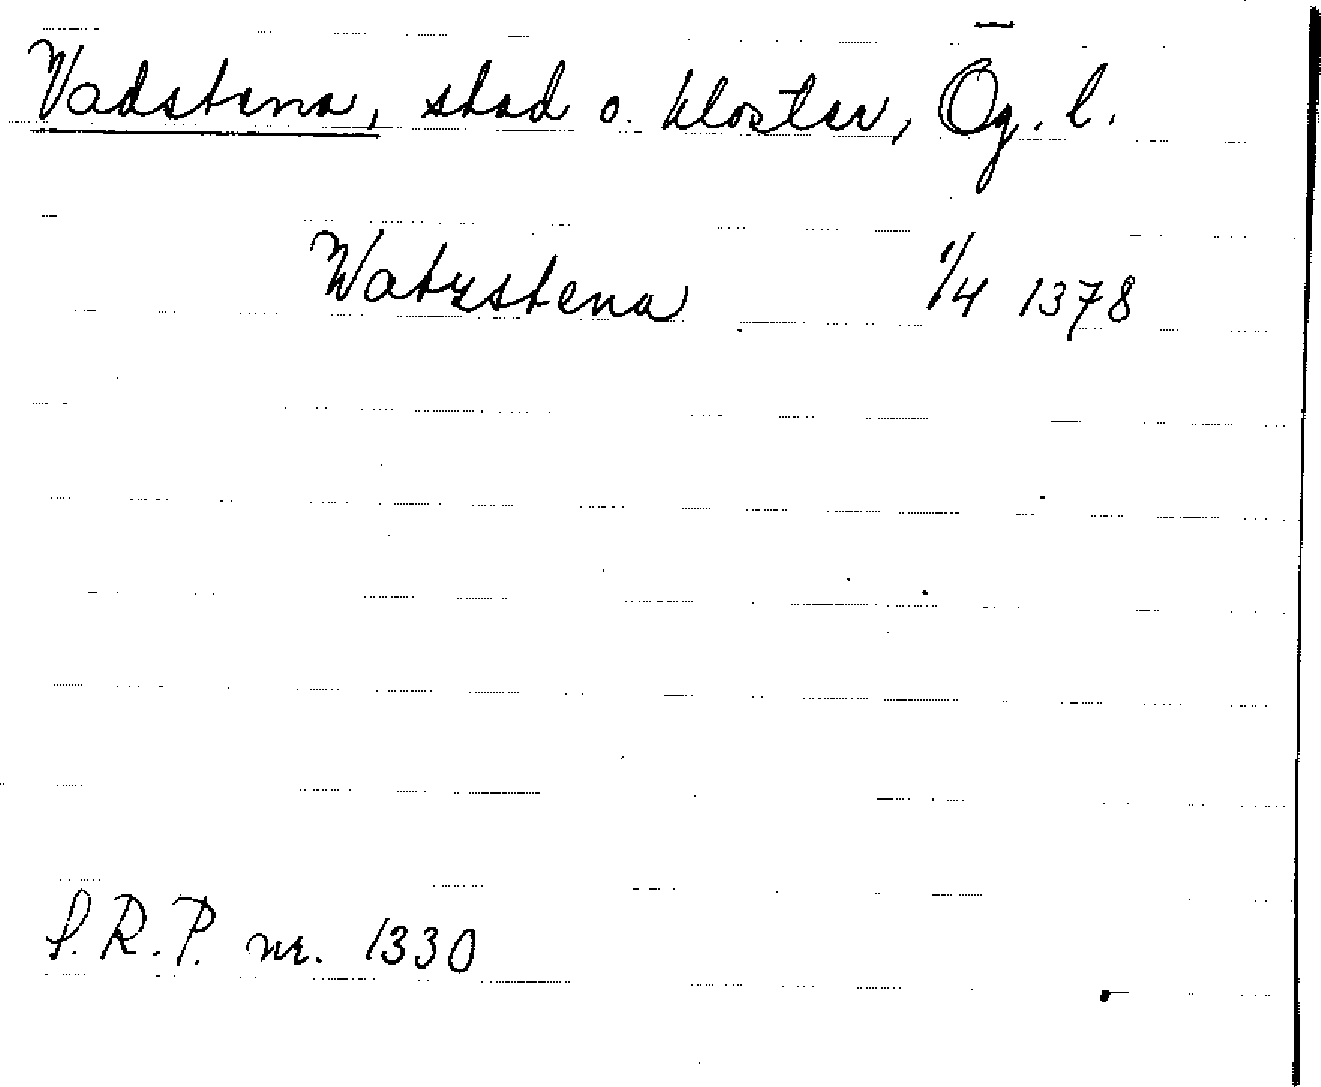 Vadstena, stad o. kloster, Ög. l.
Watzstena 1/4 1378
S.R.P. nr. 1330